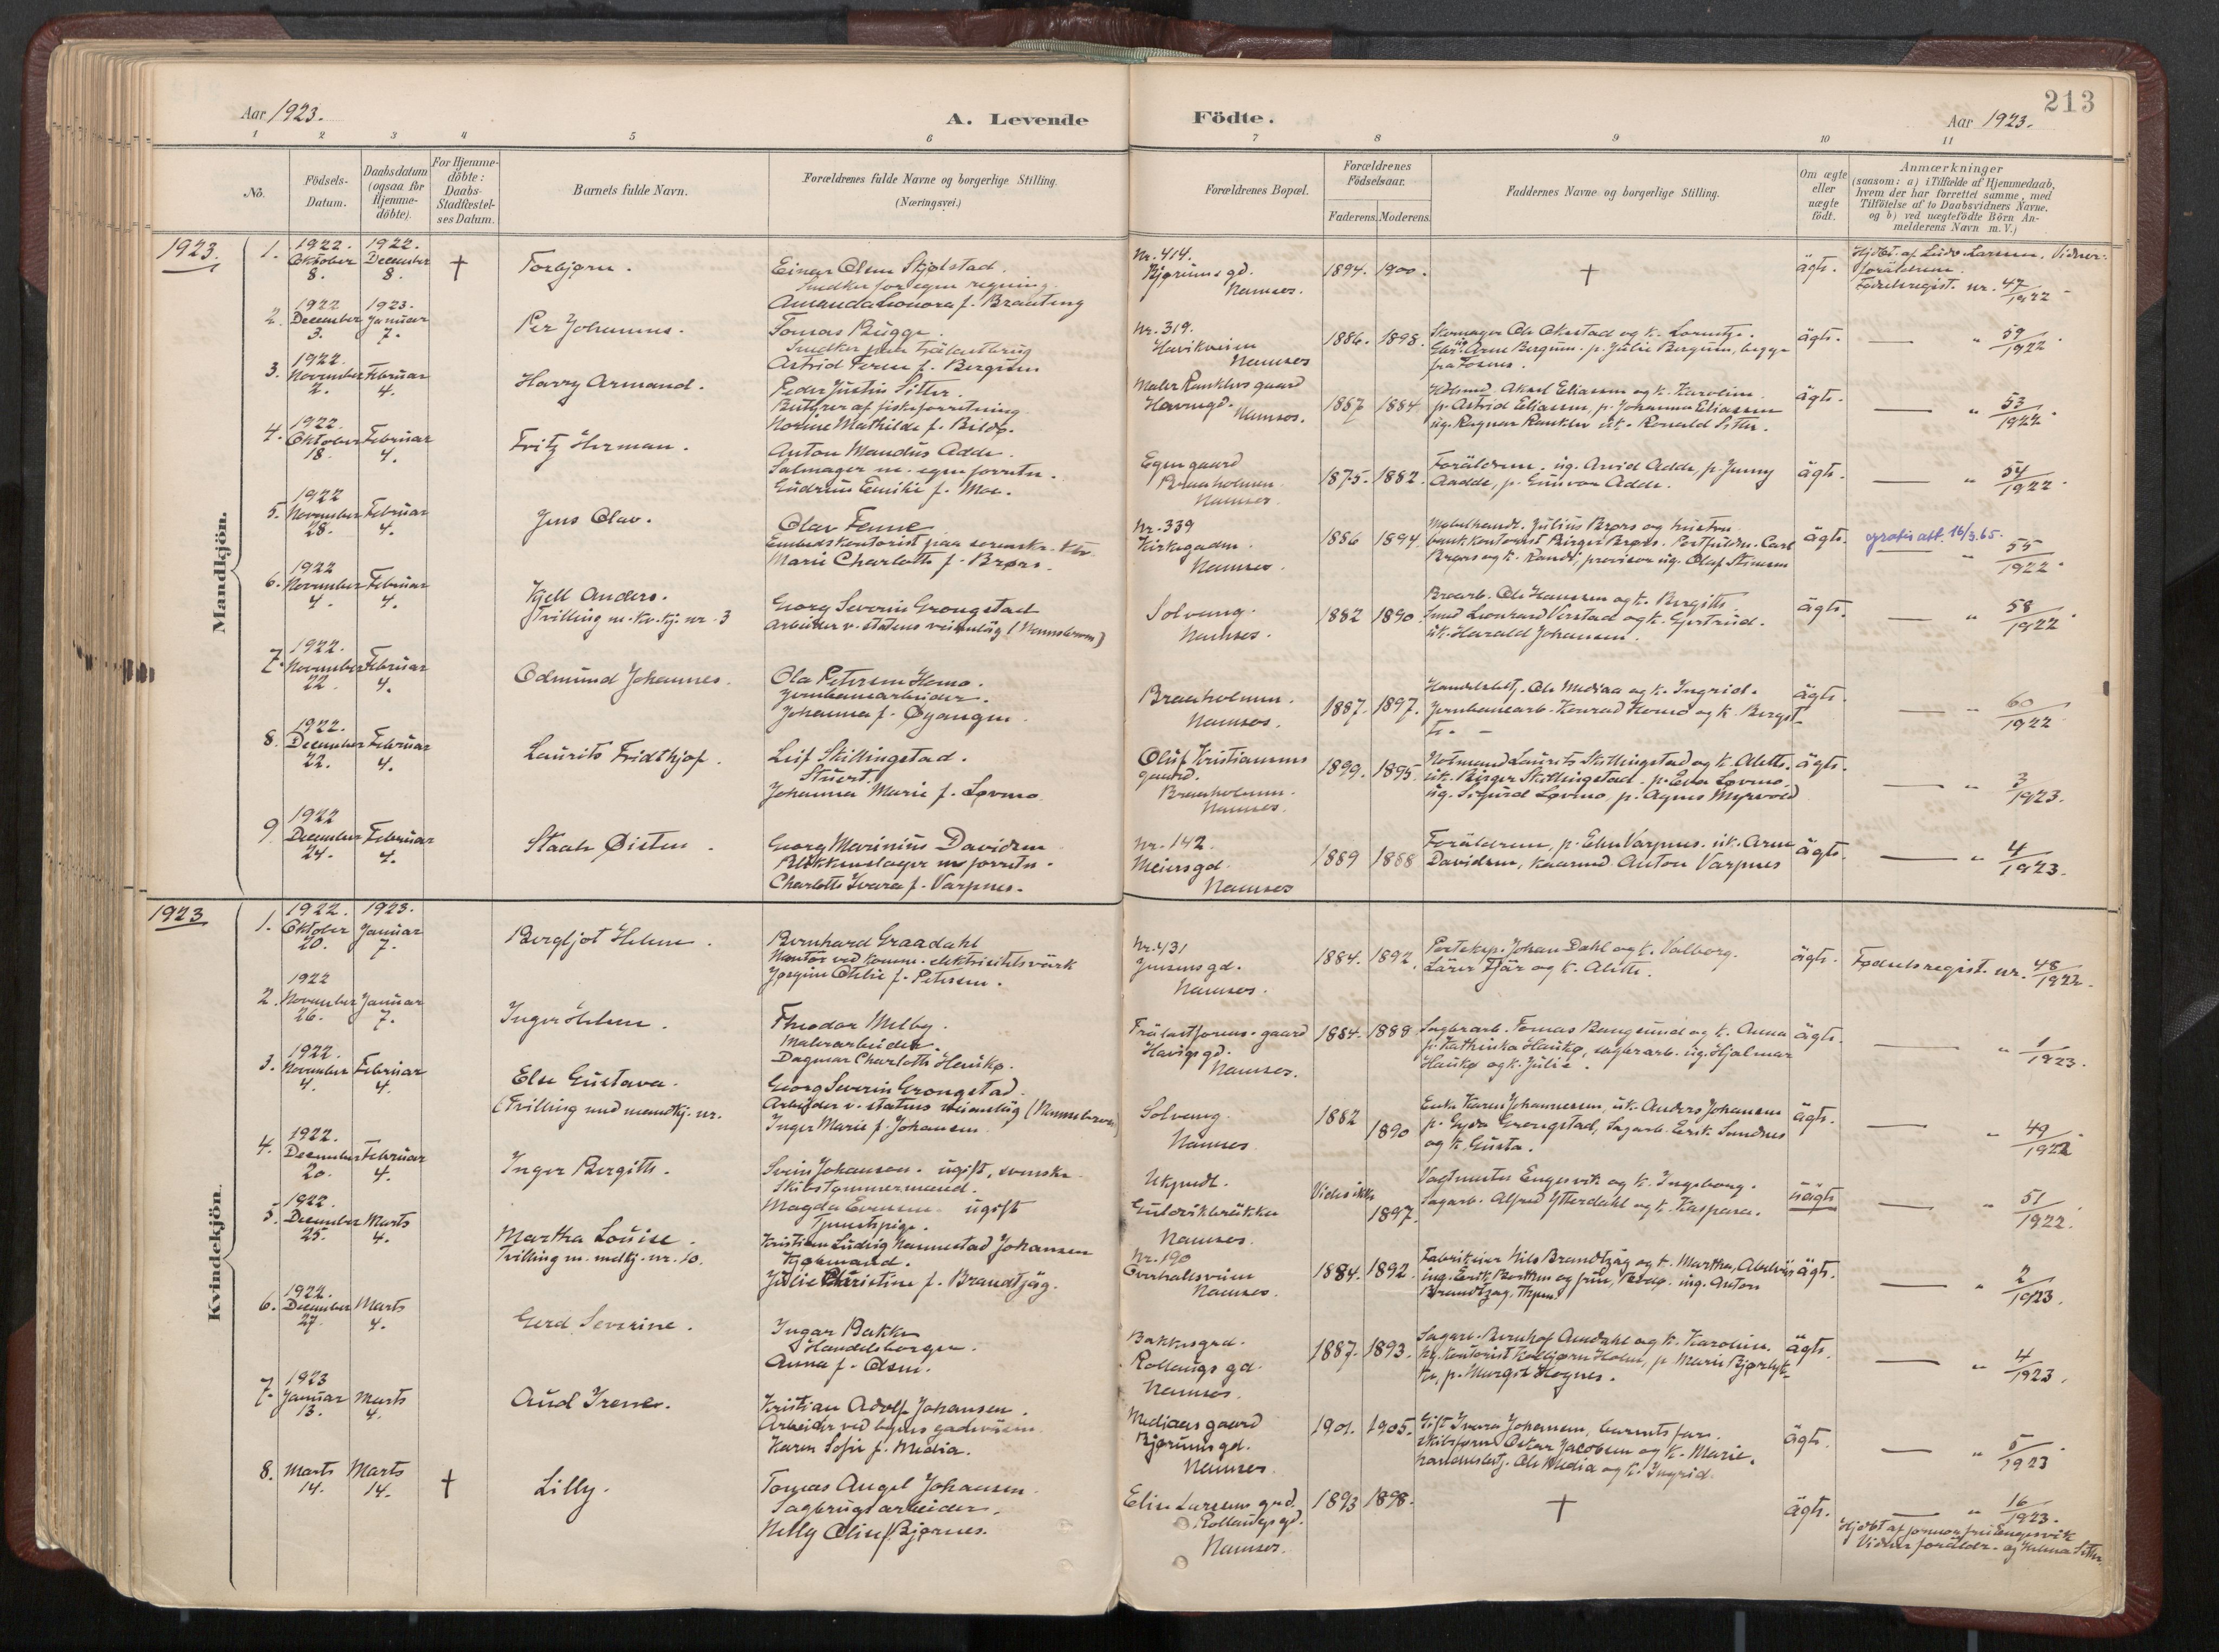 213
Aar 1923.
A. Levende Födte.
Aar 1923.
1 2 3 4 5 6 7 8 9 10 11
No.
Födsels-Datum.
Daabsdatum (ogsaa for Hjemme-döbte).
For Hjemme-döbte: Daabs-Stadfæstel-ses Datum.
Barnets fulde Navn.
Forældrenes fulde Navne og borgerlige Stilling. (Næringsvei.)
Forældrenes Bopæl.
Forældrenes Födselsaar.
Faderens. Moderens.
Faddernes Navne og borgerlige Stilling.
Om ægte eller uægte födt.
Anmærkninger
(saasom: a) i Tilfælde af Hjemmedaab,
hvem der har forrettet samme, med
Tilföielse af to Daabsvidners Navne,
og b) ved uægtefödte Börn An-
melderens Navn m. V.)
Mandkjön.
1923.
1. 1922. Oktober 8. 1922. December 8. †
Torbjørn.
Einar Olsen Skjølstad.
Snedker for egen regning
Amanda Leonora f. Brauteng
Nr. 414.
Bjørumsgd.
Namsos.
1894. 1900.
†
ägte.
Hjdbt. af Ludv. Larssen. Vidner:
foräldrene.
Fødselsregist. nr. 47/1922
2. 1922 December 3. 1923. Januar 7.
Per Johannes.
Tomas Bugge.
Snedker paa trälastbrug
Astrid f. Bergum
Nr. 319.
Havikveien
Namsos
1886. 1898.
Skomager Ole Okstad og k. Lorentze.
Arne Bergum. p. Julie Bergum, begge
fra Fosnes.
ägte.
— " 59/1922
3. 1922. November 2. Februar 4.
Harry Armand.
Peder Justin Sitter.
Bestyrer af fiskeforretning
Norine Mathilde f.
Maler Ranklevs gaard
Havnegd. Namsos.
1887 1884
Aksel Eliassen og k. Karoline
p. Astrid Eliassen, p. Johanna Eliassen
ug. Ragnar Ranklev uk. Ronald Sitter.
ägte.
— " 53/1922.
4. 1922. Oktober 18. Februar 4.
Fritz Herman.
Anton Mandus Adde.
Salmager m. egen forretn.
Gudrun Emilie f. Moe.
Egen gaard
Braaholmen
Namsos
1875. 1882.
Foräldrene. ug. Arvid Adde, p. Jenny
Aadde, p. Gunvor Adde.
ägte.
— " 54/1922.
5. 1922 November 28. Februar 4.
Jens Olav.
Olav Fenne
Embedskontorist paa sorenskr. ktr.
Marie Charlotte f. Brørs.
Nr. 339
Kirkegaden
Namsos.
1886 1894
Møbelhandl. Julius Brørs og hustru
bankkontorist Birger Brørs. Postfuldm. Carl
Brørs og k. Randi, provisor ug. Olaf Stinesen
ägte.
gratis att. 16/3.65.
— " 55/1922.
6. 1922 November 4. Februar 4.
Kjell Anders.
Tvilling m. kv.kj. nr. 3
Georg Severin Grongstad
Arbeider v. statens veianläg (Namsbroen)
Solvang.
Namsos.
1882 1890
Ole Hanssen og k. Bergitte
Smed Leonhard Verstad og k. Gjertrud.
uk. Harald Johansen.
ägte.
— " 58/1922
7. 1922. November 22. Februar 4.
Odmund Johannes.
Ola Petersen Homo.
Jernbanearbeider.
Johanna f. Øyangen.
Braaholmen.
Namsos.
1887. 1897.
Handelsbetj. Ole Mediaa og k. Ingrid.
Jernbanearb. Konrad Homo og k. Bergit-
te. —
ägte.
— " 60/1922
8. 1922. December 22. Februar 4.
Laurits Fridthjof.
Leif Skillingstad.
Stuert.
Johanna Marie f. Løvmo.
Oluf Kristiansens
gaard.
Braaholmen.
Namsos.
1899. 1895.
Notmand Laurits Skillingstad og k. Alette.
uk. Birger Skillingstad. p. Eva Løvmo.
ug. Sigurd Løvmo, p. Agnes Myrvold
ägte.
— " 3/1923.
9. 1922 December 24. Februar 4.
Staale Øisten.
Georg Marinius Davidsen
Blikkenslager m. forretn.
Charlotte Ivara f. Varpnes.
Nr. 142.
Meiersgd.
Namsos
1889 1888
Foräldrene, p. Elen Varpnes. uk. Arne
Davidsen, Anton Varpnes
ägte.
— " 4/1923.
Kvindekjön.
1923
1. 1922. Oktober 20. 1923. Januar 7.
Bergljot Helene.
Bernhard Graadahl
Montør ved komm. elektricitetsvärk
Jørgine Otelie f. Petersen.
Nr. 431
Jensensgd.
Namsos.
1884. 1892.
Posteksp. Johan Dahl og k. Valborg.
Lärer Fjär og k. Alette.
ägte.
Fødselsregist. nr. 48/1922.
2. 1922 November 26. Januar 7.
Inger Helene.
Theodor Melby.
Malerarbeider.
Dagmar Charlotte Haukø.
Trälastforens. gaard
Havigsgd.
Namsos.
1884. 1889
Sagbrarb. Tomas Bangsund og k. Anna
p. Kathinka Haukø, sagbrarb. ug. Hjalmar
Haukø og k. Julie.
ägte.
— " 1/1923.
3. 1922. November 4. Februar 4.
Else Gustava.
(Tvilling med mandkj. nr.
Georg Severin Grongstad.
Arbeider v. statens veianläg (Namsbroen)
Inger Marie f. Johansen.
Solvang.
Namsos
1882 1890
Enke Karen Johannessen, uk. Anders Johansen
p. Gyda Grongstad, Sagarb. Eirik Sundnes
og k. Gusta.
ägte.
— " 49/1922
4. 1922. December 20. Februar 4.
Inger Bergitte.
Svein Johansson. ugift, svensk
Skibstømmermand.
Magda Evensen ugift
Tjenestepige.
Ukjendt.
Guldvikbräkka
Namsos.
Vides ikke
1897.
Vagtmester Engesvik og k. Ingeborg.
Sagarb. Alfred Ytterdahl og k. Kaspara.
uägte
— " 51/1922.
5. 1922. December 25. Marts 4.
Martha Louise.
Tvilling m. mdkj. nr. 10.
Kristian Ludvig Hannestad Johansen
Kjøbmand.
Julie Christine f. Brandtzäg.
Nr. 190
Overhallsveien
Namsos.
1884. 1892.
Fabrikeier Nils Brandtzäg og k. Martha, Abelvär
ing. Eirik og frue, ug. Anton
Brandtzäg, Thjem.
ägte.
— " 2/1923.
6. 1922. December 27. Marts 4.
Gerd Severine.
Ingar Bakke
Handelsborger.
Anna f. Olsen.
Bakkesgrd.
Rollaugs gd.
Namsos.
1887. 1893.
Sagarb. Bernhof Amdahl og k. Karoline.
kontorist Torbjørn Holm, p. Marie
p. Margit Høgnes.
ägte.
— " 4/1923.
7. 1923 Januar 13. Marts 4.
Aud Irene.
Kristian Adolf Johansen.
Arbeider ved byens gadevesen
Karen Sofie f. Media.
Mediaas gaard
Bjørumsgd.
Namsos
1901. 1905.
Gift Ivara Johansen, barnets farm.
Oskar Jacobsen og k. Marie.
handelsbetj. Ole Media og k. Ingrid.
ägte.
— " 5/1923
8. Marts 14. Marts 14. †
Lilly.
Tomas Angel Johansen
Sagbrugsarbeider.
Nelly Oline f. Bjørnes.
Elise Larsens grd.
Rollaugsgd.
Namsos.
1893 1898.
†
ägte.
— " 16/1923.
Hjdbt af jormor fru Engesvik
Vidner foräldr. og Helena Sitter